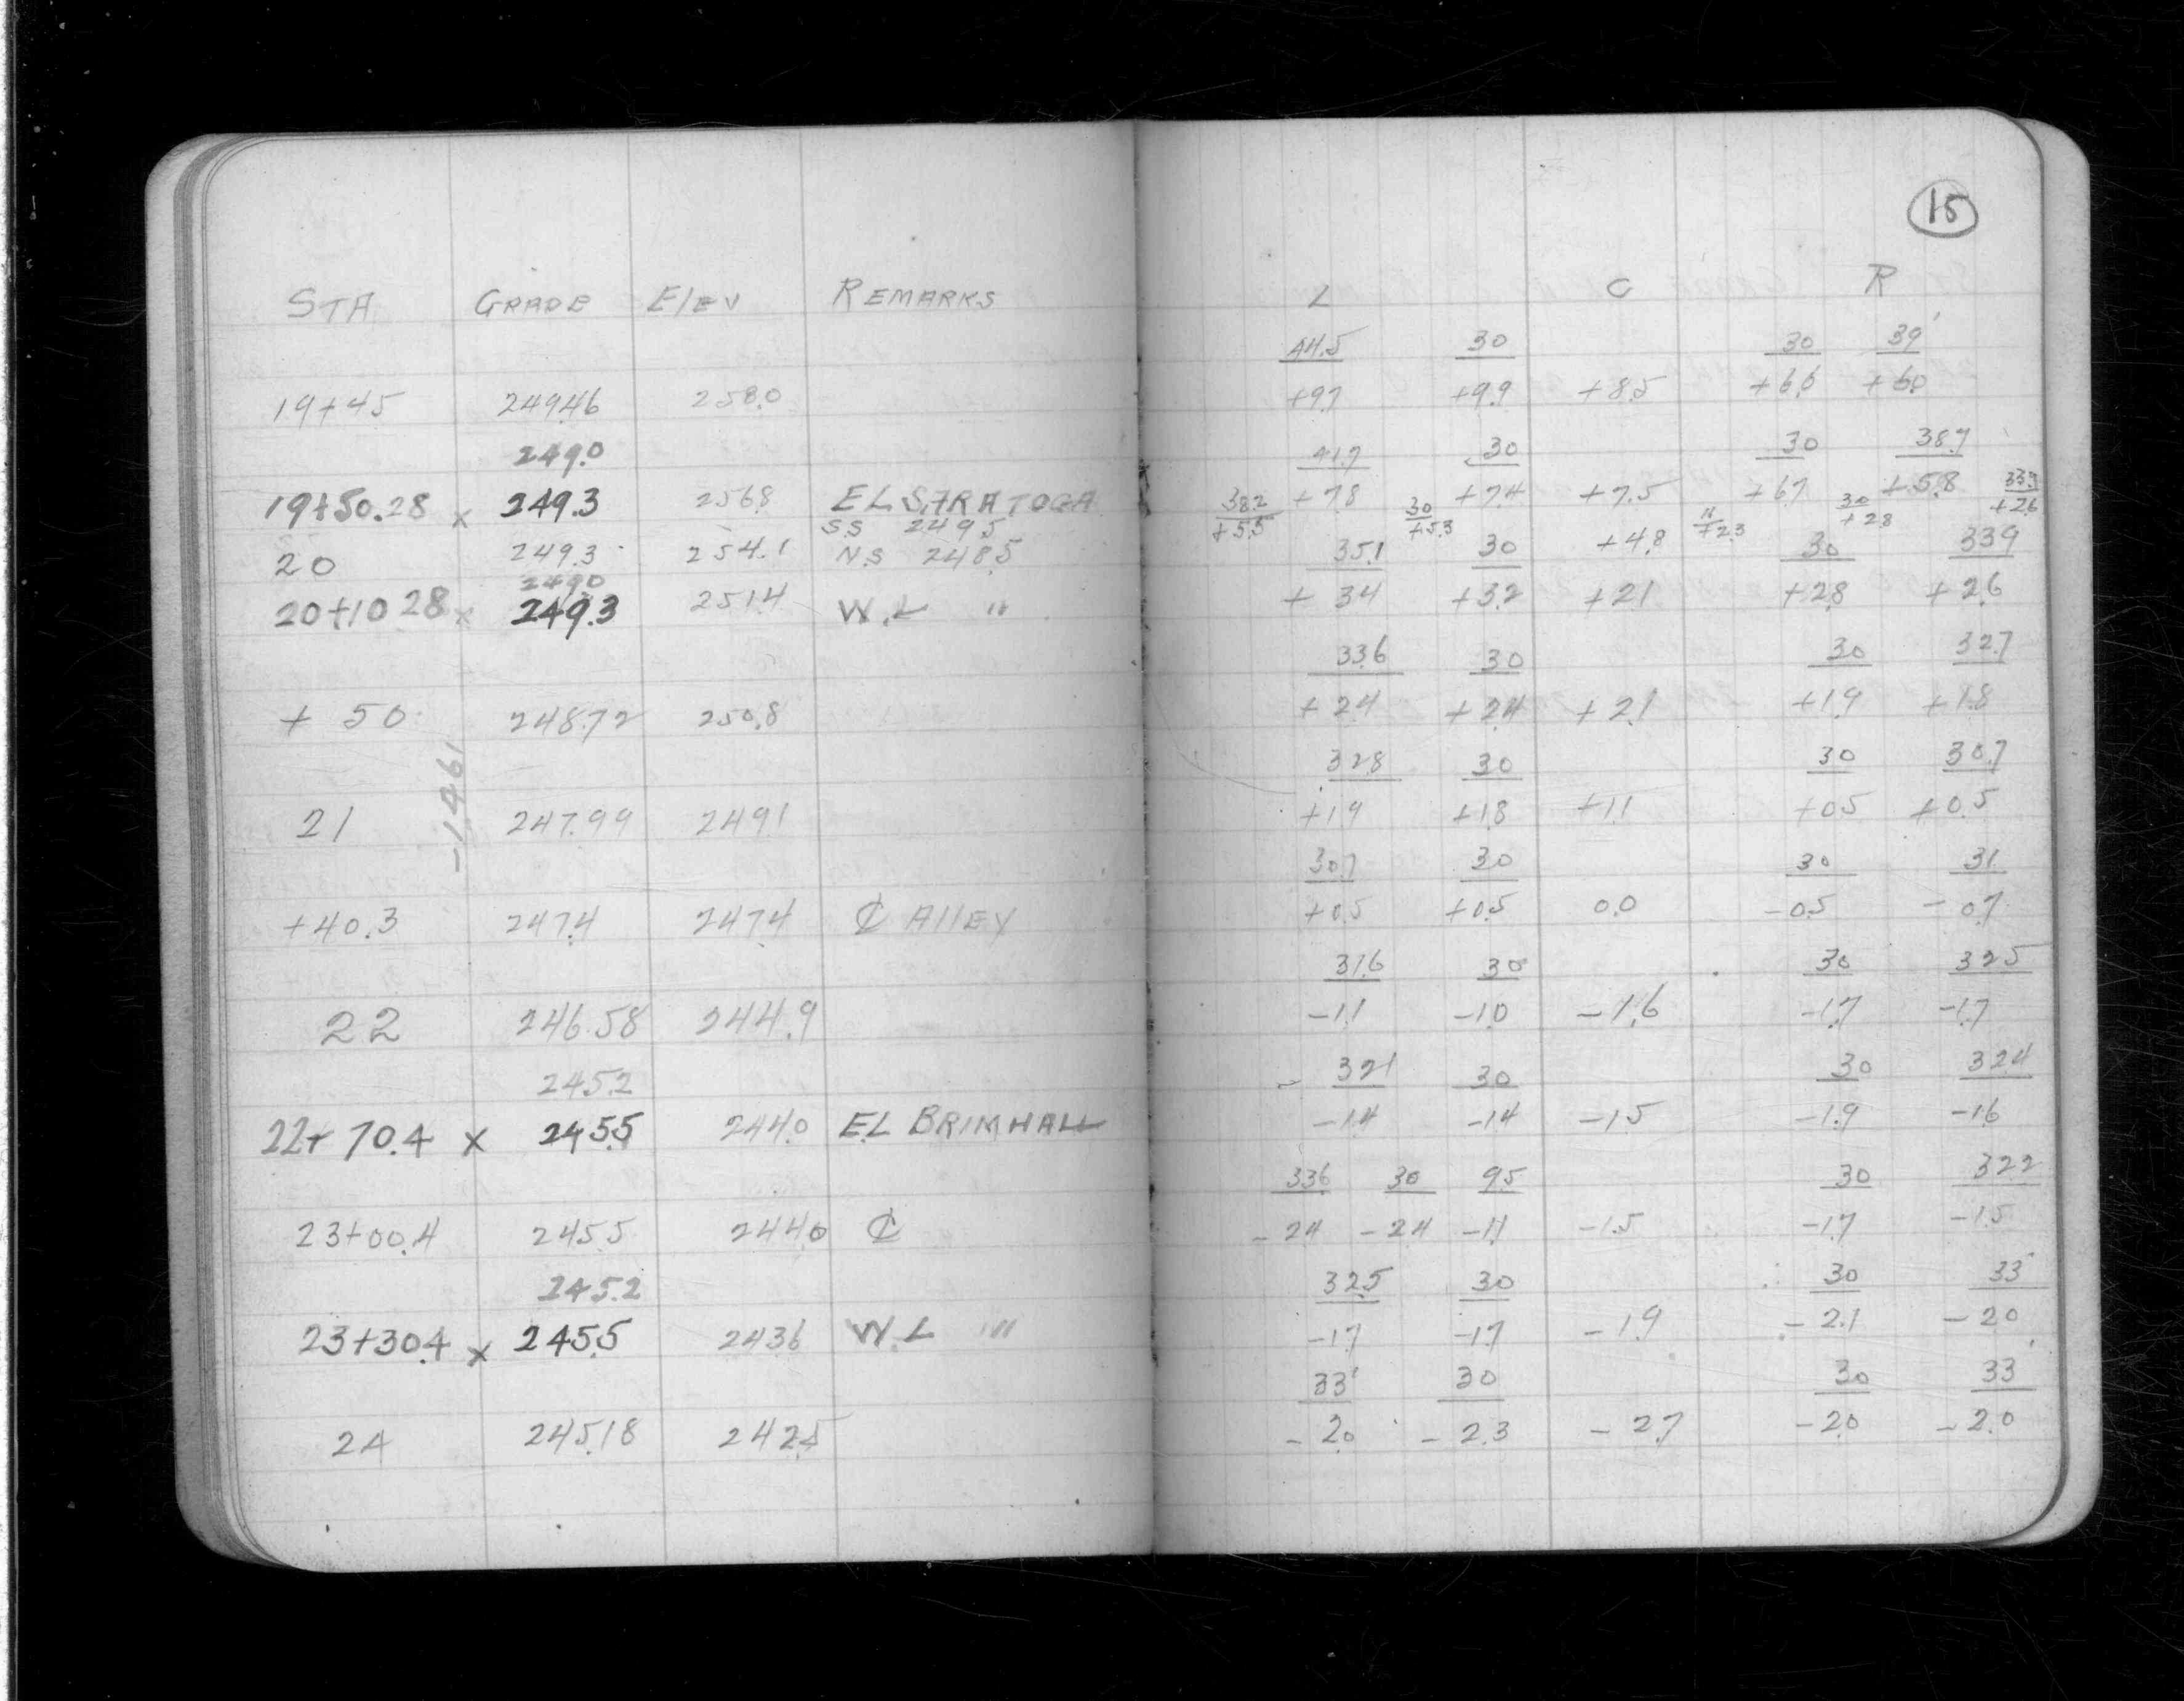 15
STA GRADE Elev REMARKS
L C R
44.5 30 30 39'
19+45 249.46 258.0
+9.7 +9.9 +8.5 +6.6 +6.0
249.0
41.7 30 30 38.7
19+50.28 x 249.3 256.8 E.L. SARATOGA
+7.8 +7.4 +7.5 +6.7 +5.8
S.S 249.5
38.2 30 11 30 33.9
+5.5 +5.3 +4.8 +2.3 +2.8 +2.6
20 249.3 254.1 N.S 248.5
35.1 30 30 33.9
249.0
20+10 28 x 249.3 251.4 W.L "
+ 3.4 +3.2 +2.1 +2.8 +2.6
33.6 30 30 32.7
+ 50 248.72 250.8
+ 2.4 +2.4 +2.1 +1.9 +1.8
-1.461
32.8 30 30 30.7
21 247.99 249.1
+1.9 +1.8 +1.1 +0.5 +0.5
30.7 30 30 31
+40.3 247.4 247.4 ℄ Alley
+0.5 +0.5 0.0 -0.5 -0.7
31.6 30 30 32.5
22 246.58 244.9
-1.1 -1.0 -1.6 -1.7 -1.7
245.2
32.1 30 30 32.4
22+ 70.4 x 245.5 244.0 E.L BRIMHALL
-1.4 -1.4 -1.5 -1.9 -1.6
33.6 30 9.5 30 32.2
23+00.4 245.5 244.0 ℄
-2.4 -2.4 -1.1 -1.5 -1.7 -1.5
245.2
32.5 30 30 33'
23+30.4 x 245.5 243.6 W.L "
-1.7 -1.7 -1.9 -2.1 -2.0
33' 30 30 33'
24 245.18 242.5
-2.0 -2.3 -2.7 -2.0 -2.0